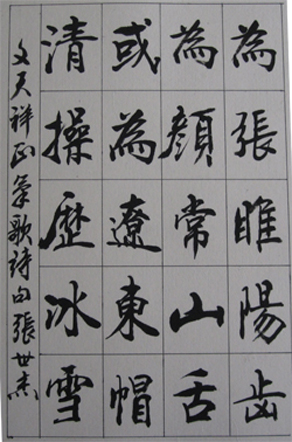 為張睢陽齿
為顏常山舌
或為遼東帽
清操歷冰雪
文天祥正氣歌詩句張世杰